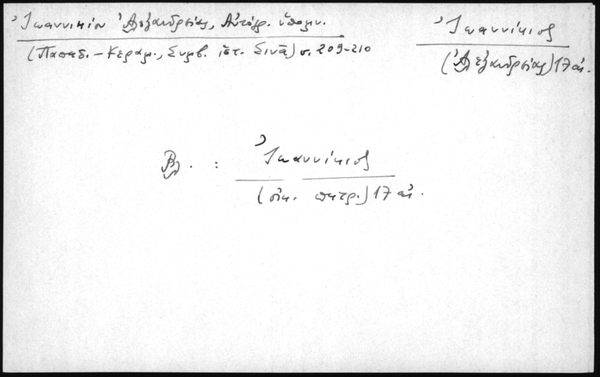 Ἰωαννικίου Ἀλεξανδρείας, Αὐτόγρ. ὑπόμν.
(Παπαδ.-Κεραμ., Συμβ. ἱστ. Σινᾶ) σ. 209-210
Ἰωαννίκιος
(Ἀλεξανδρείας) 17 αἰ.
Βλ. : Ἰωαννίκιος
(οἰκ. πατρ.) 17 αἰ.